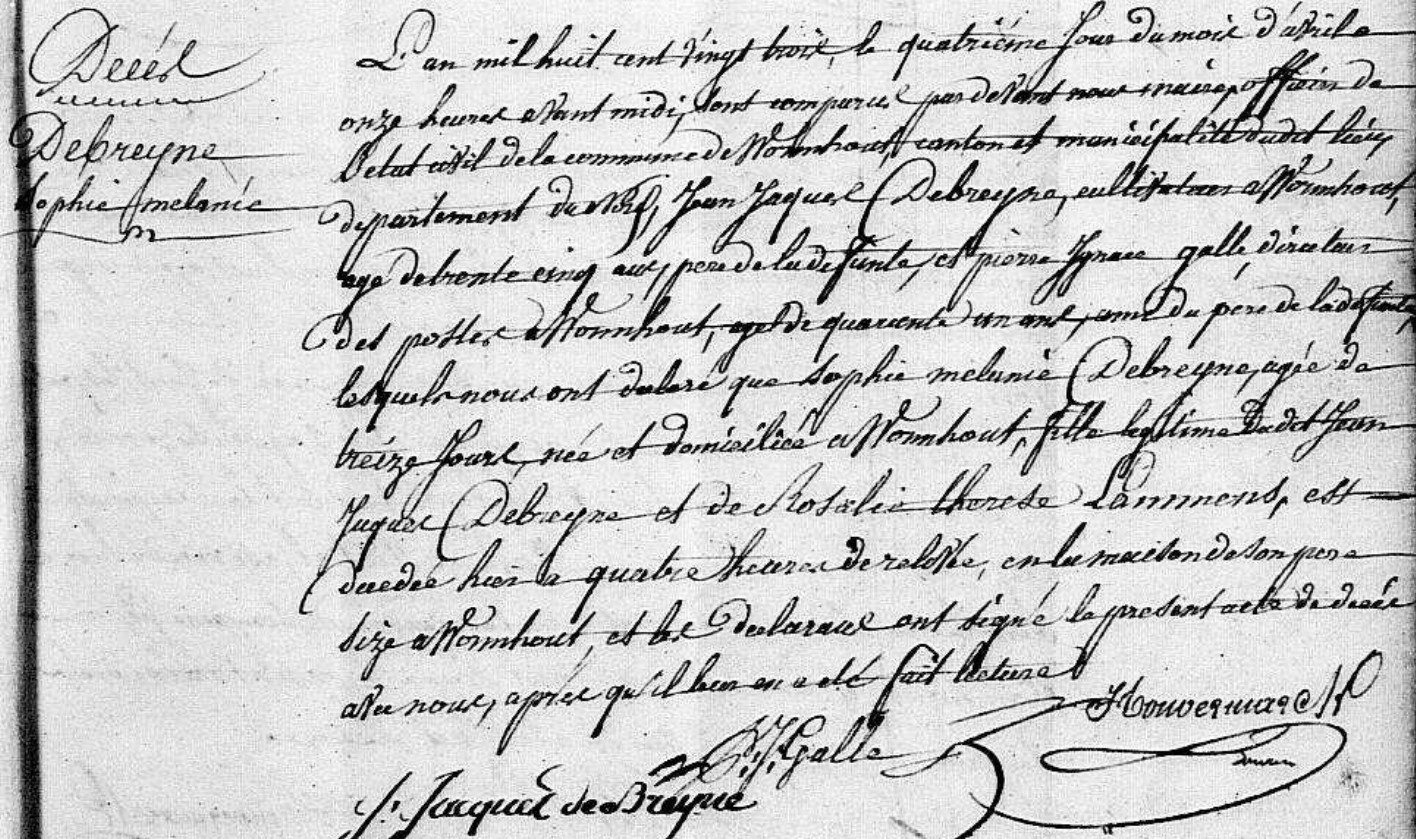 Décés
Debreyne
Sophie melanie
L'an mil huit cent vingt trois, le quatriéme Jour du mois d'avril a
onze heures avant midi, sont comparus pardevant nous maire, officier de
l'etat civil de la commune de Wormhout, canton et municipalité dudit lieu,
departement du Nord, Jean Jaques Debreyne, cultivateur a Wormhout,
agé de trente cinq ans, pere de la defunte, et pierre Ignace galle, directeur
des postes a Wormhout, agé de quarante un ans, ami du pere de la defunte,
lesquels nous ont declaré que Sophie melanie Debreyne, agée de
treize Jours, née et domiciliée a Wormhout, fille legitime dudit Jean
Jaques Debreyne et de Rosalie therese Lammens, est
decedée hier a quatre heures de relevée, en la maison de son pere
size a Wormhout, et les declarans ont signé le present acte de decés
avec nous, aprés qu'il leur en a eté fait lecture
P. J. Galle
J. Jacques de Breyne